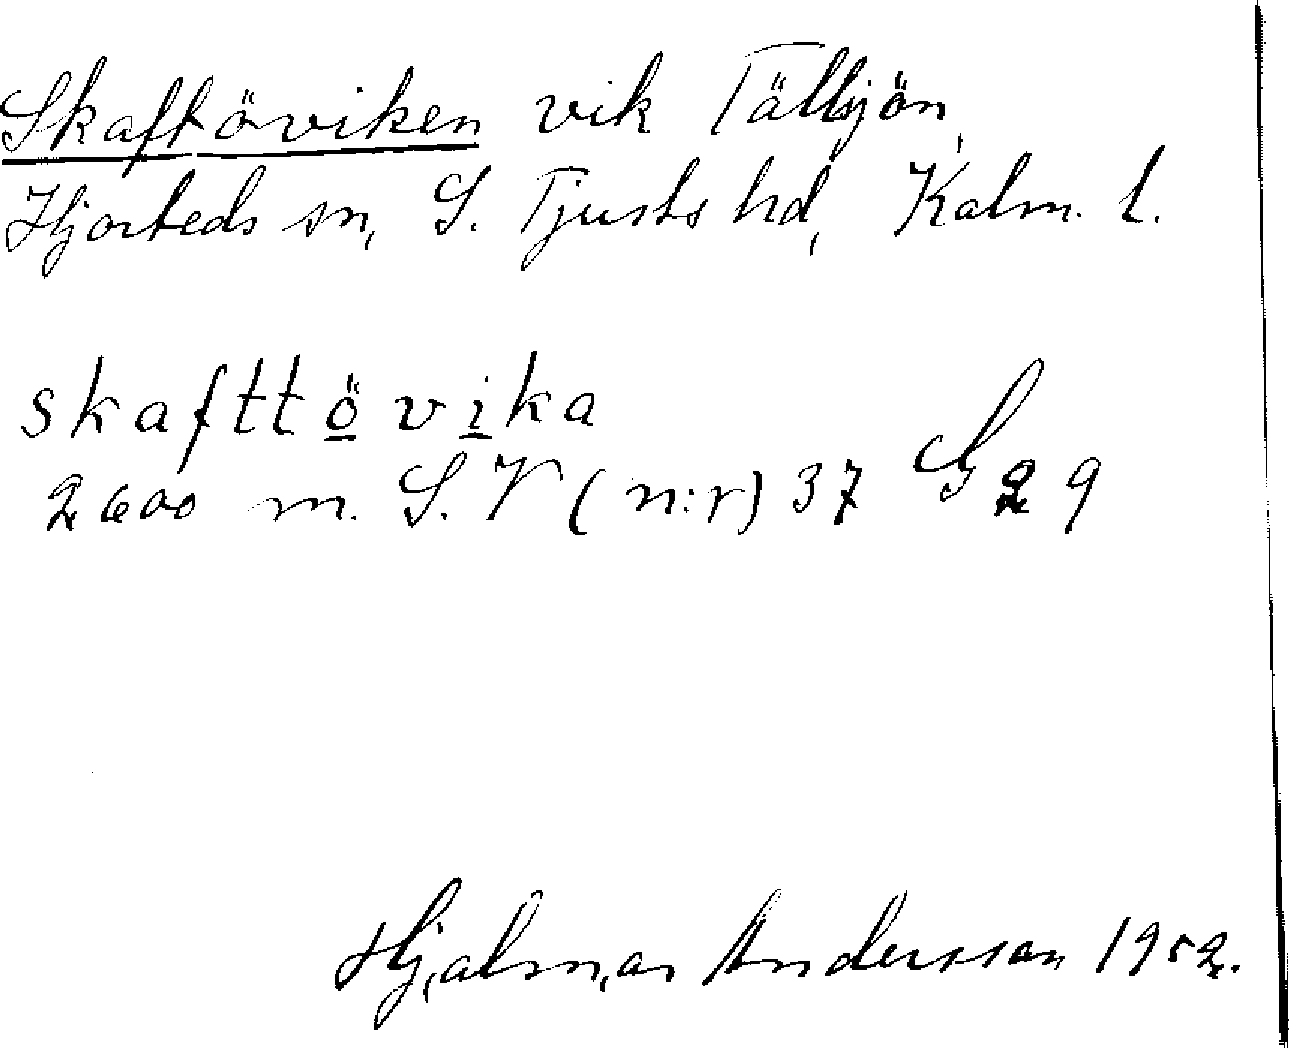 Skaftöviken vik Tällsjön,
Hjorteds sn, S. Tjusts hd, Kalm. l.
skafttövika
2600 m. S. V (n:r) 37 G 29
Hjalmar Andersson 1952.